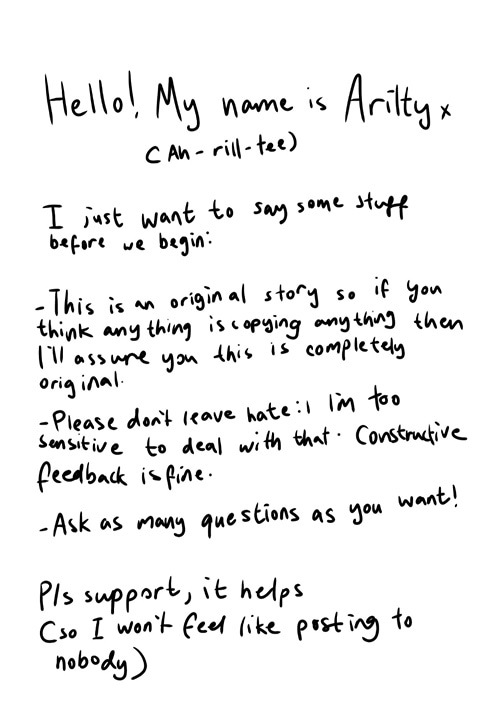 Hello! My name is Arilty x
(Ah-rill-tee)
I just want to say some stuff
before we begin:
-This is an original story so if you
think anything is copying anything then
I'll assure you this is completely
original.
-Please don't leave hate :( I'm too
sensitive to deal with that. Constructive
feedback is fine.
-Ask as many questions as you want!
Pls support, it helps
(so I won't feel like posting to
nobody)